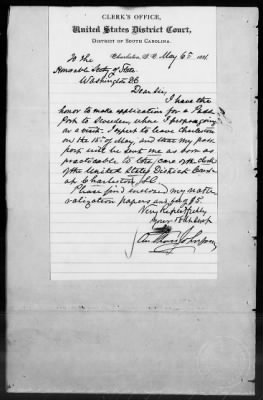 CLERK'S OFFICE,
United States District Court,
DISTRICT OF SOUTH CAROLINA.
Charleston, S. C. May 6th 1881
To the
Honorable Secty of State
Washington DC
Dear Sir,
I have the
honor to make application for a Pass
Port to Sweeden, where I propose going
on a visit. I expect to leave Charleston
on the 15th of May, and that my pass
port will be sent me as soon as
practicable to the care of the clerk
of the United States District Court
at Charleston, S.C.
Please find enclosed my natu
ralization papers and fee of $5.
Very Respectfully
Your Obt Servt
Anthony Johnson